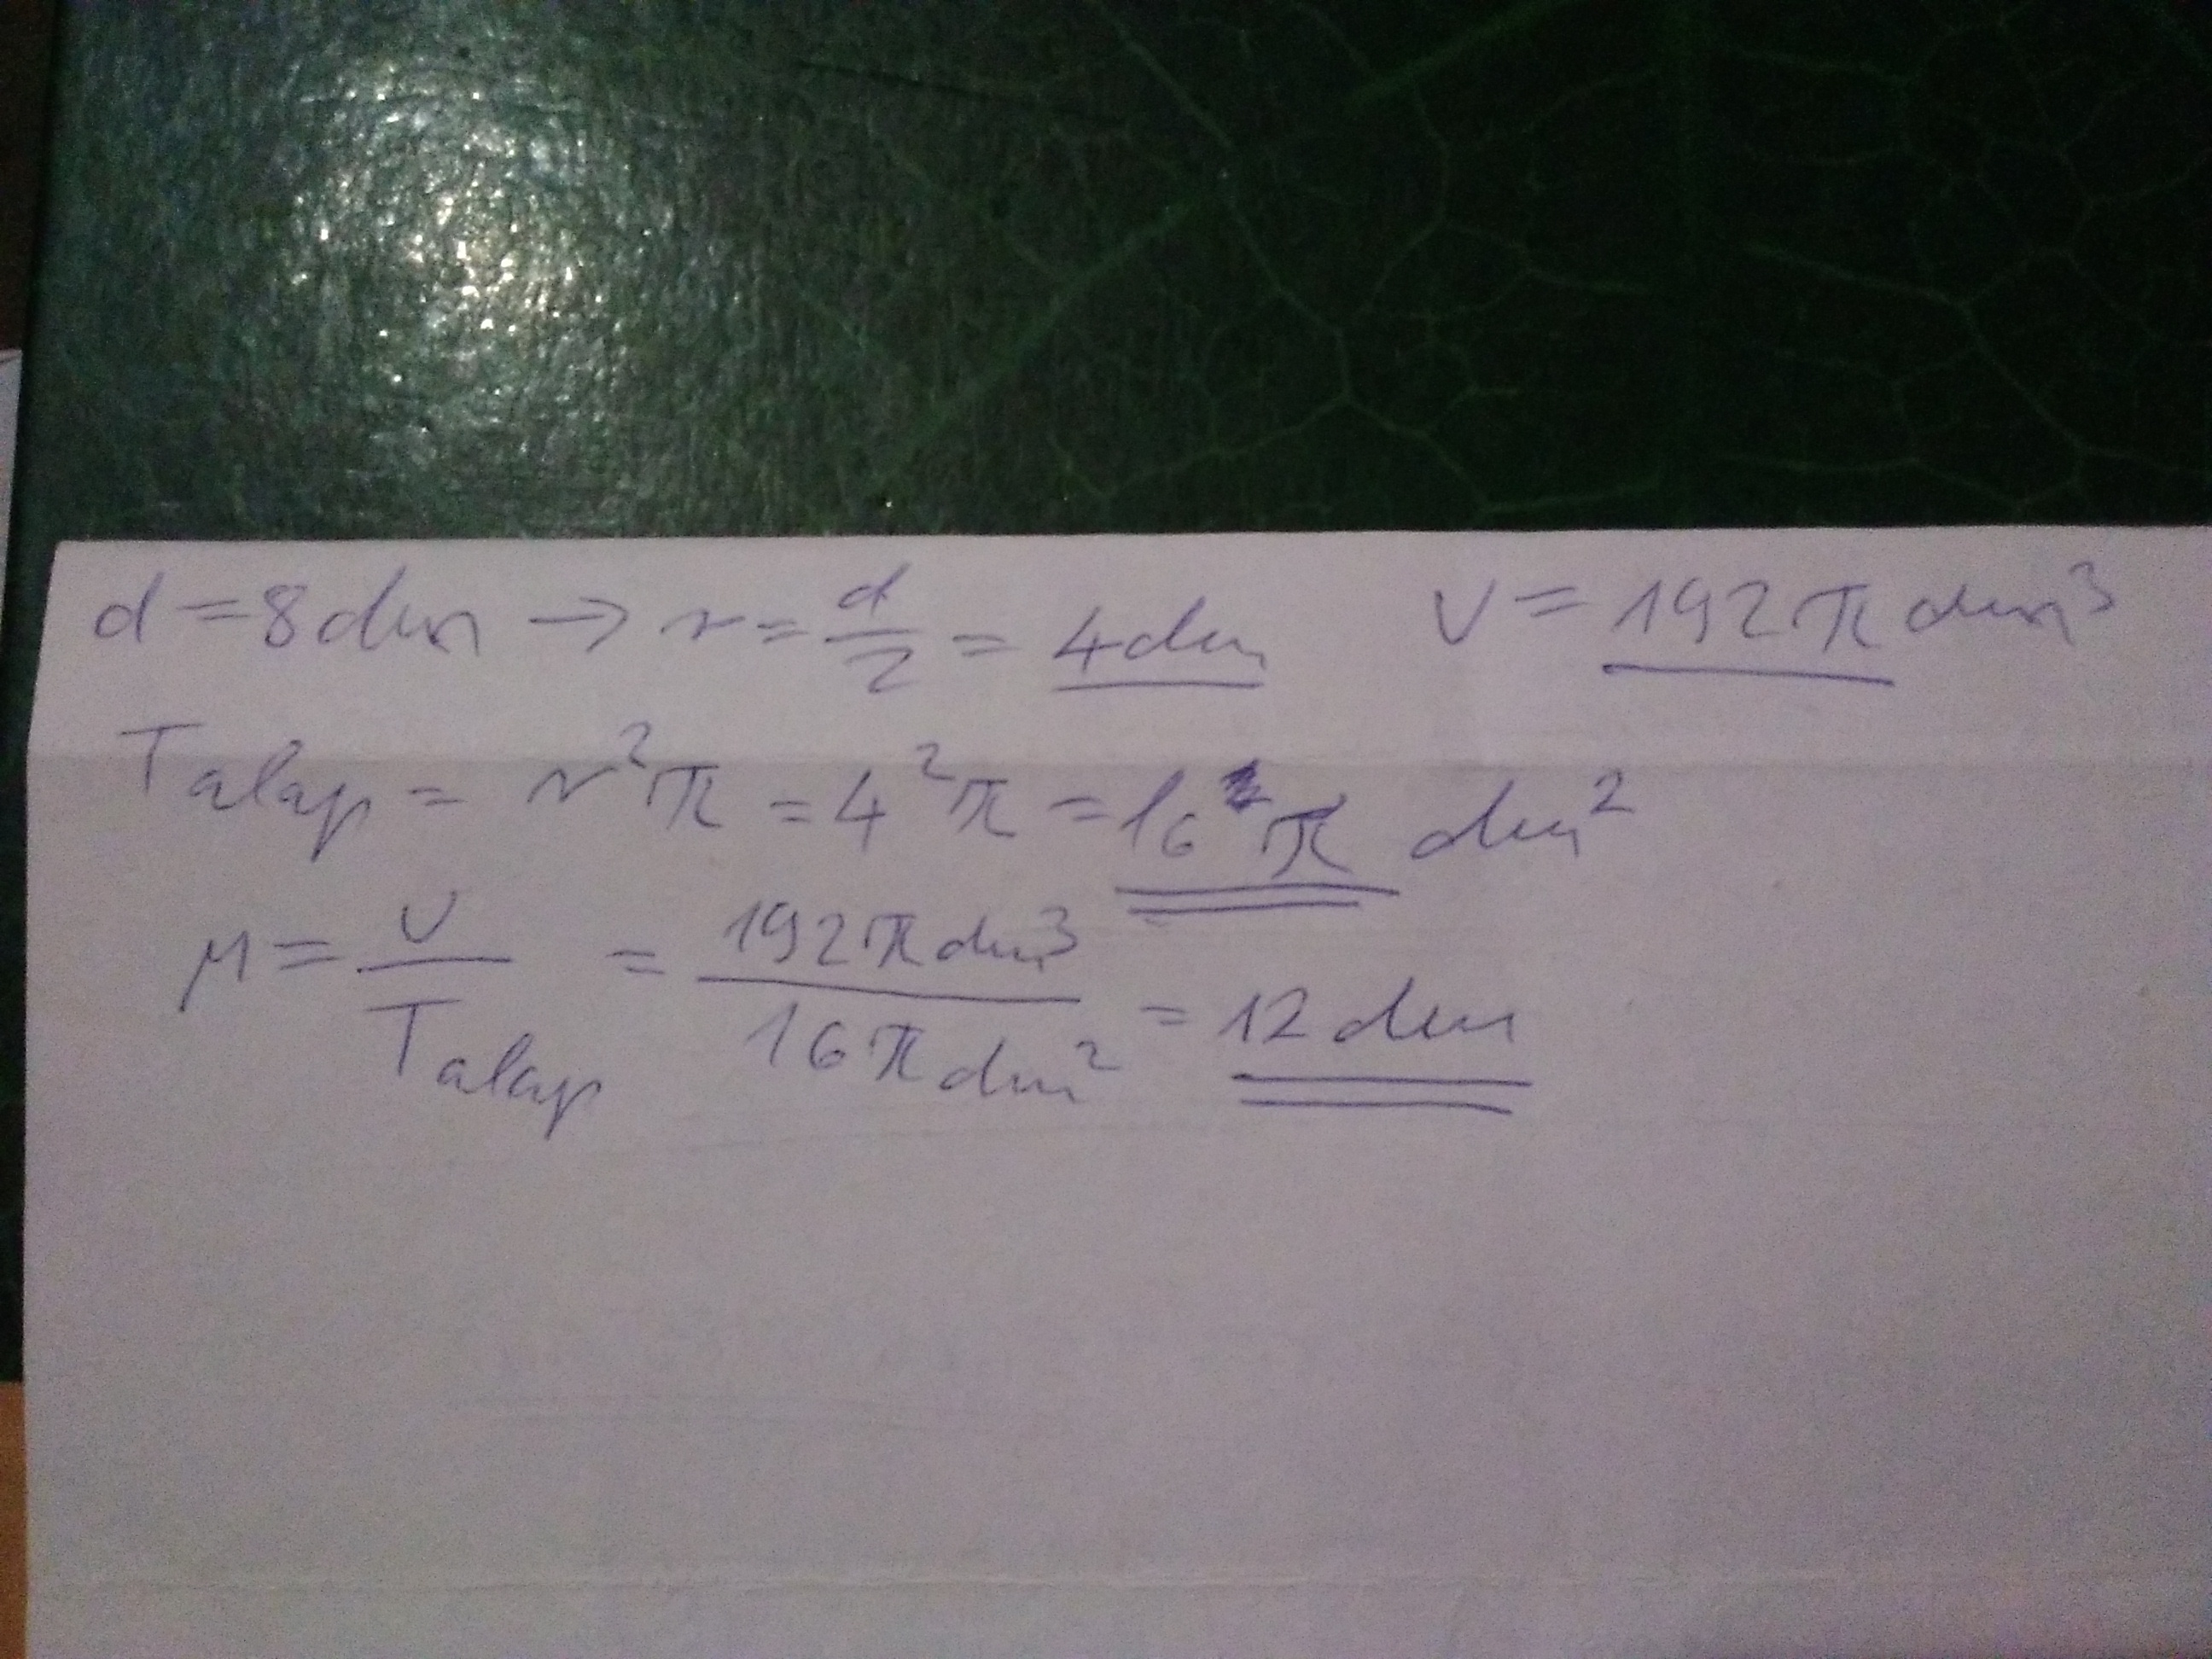 d = 8dm → r = d/2 = 4dm V = 192π dm³
Talap = r²π = 4²π = 16π dm²
M = V/Talap = 192π dm³/16π dm² = 12 dm